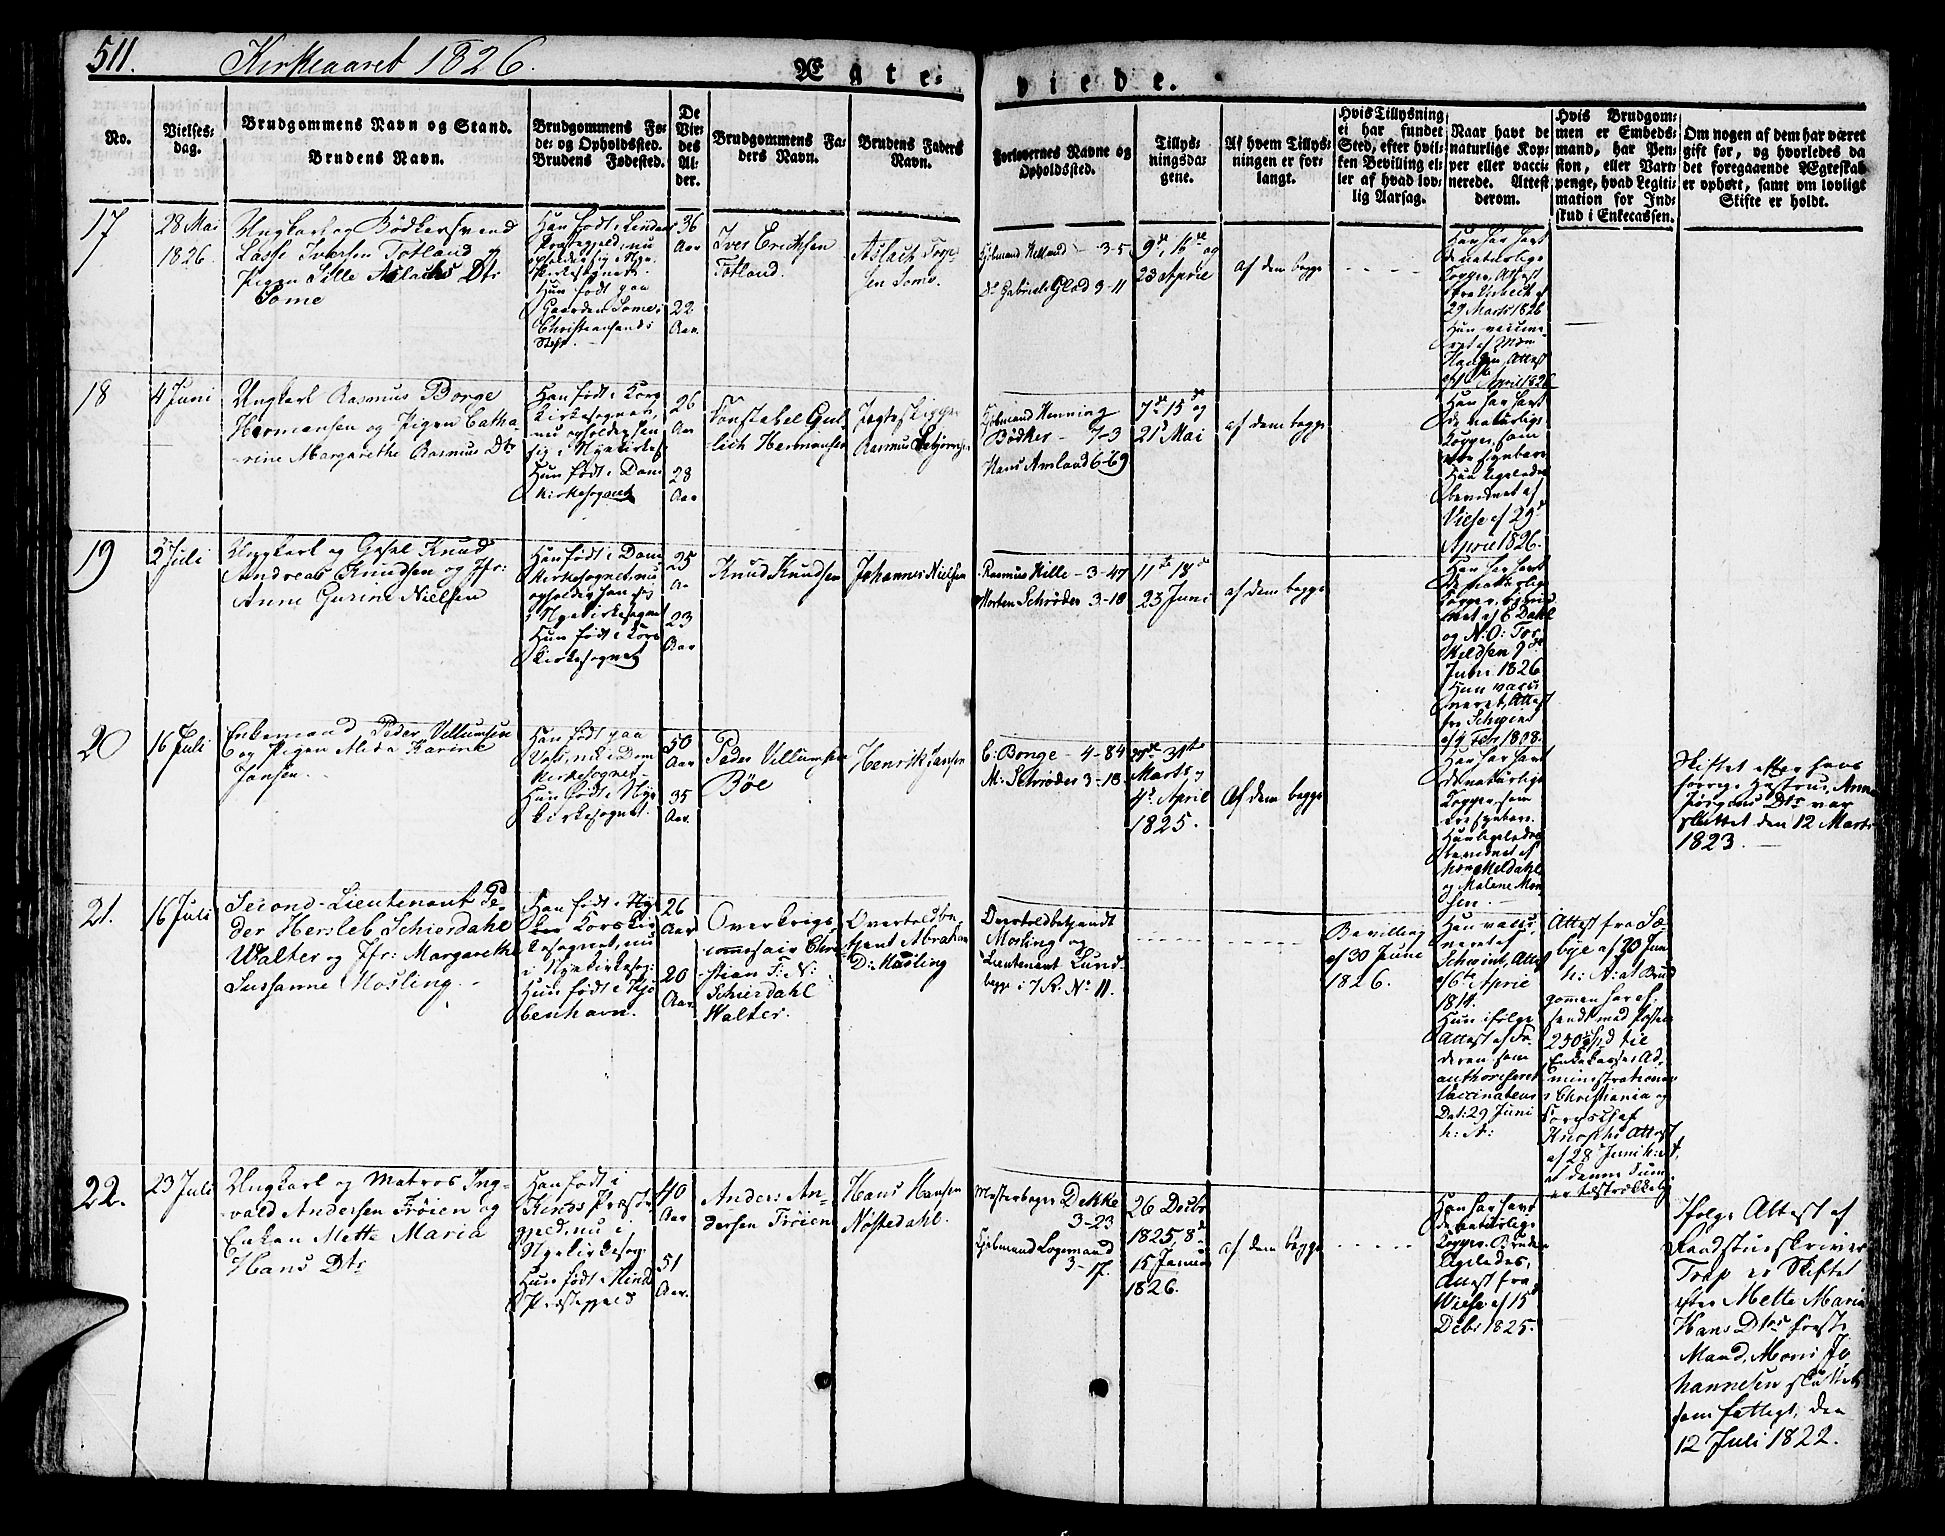 511.
Kirkeaaret 1826.
Ægte-
viede.
No.
Vielses-
dag.
Brudgommens Navn og Stand.
Brudens Navn.
Brudgommens Fø-
de- og Opholdssted.
Brudens Fødested.
De
Vie-
des
Al-
der.
Brudgommens Fa-
ders Navn.
Brudens Faders
Navn.
Forlovernes Navne og
Opholdssted.
Tillys-
ningsda-
gene.
Af hvem Tillys-
ningen er for-
langt.
Hvis Tillysning
ei har fundet
Sted, efter hvil-
ken Bevilling el-
ler af hvad lov-
lig Aarsag.
Naar havt de
naturlige Kop-
per eller vacci-
nerede. Attest
derom.
Hvis Brudgom-
men er Embeds-
mand, har Pen-
sion, eller Vart-
penge, hvad Legiti-
mation for Ind-
skud i Enkecassen.
Om nogen af dem har været
gift før, og hvorledes da
det foregaaende Ægteskab
er ophørt, samt om lovligt
Skifte er holdt.
17
28 Mai
1826.
Ungkarl og Bødkersvend
Lasse Iversen Totland og
Pigen Sille Aslachs Dtr
Some
Han født i Lindaas
Præstegjeld, nu
opholder sig i Nye
Kirkesognet.
Hun født paa
Gaarden Some i
Christiansands
Stift.
36
Aar
22
Aar
Iver Erichsen
Totland.
Aslach
sen Some.
Helland - 3-5
Do Gabriel Glad 3-11
9de, 16de og
23 Aprie
af dem begge
Han har havt
de naturlige
Kopper, Attest
fra af
29 Marts 1826
Hun vacci-
neret af
Attest
April 1826
18
4 Juni
Ungkarl Rasmus Borge
Hermansen og Pigen Catha-
rine Margarethe Rasmus Dtr
Han født i Kors
Kirkesognet,
nu opholder han
sig i Nyekirkes.
Hun født i Dom
Kirkesognet
26
Aar
28
Aar
Constabel
Hermansen
Jagteskipper
Rasmus
Henning
Bødker - 7-3
Hans Amland 6-69
7de 15de og
21de Mai
af dem begge
Han har havt
de naturlige
Kopper, som
ere synbare.
Hun ligeledes
bevidnet af
Wiese af 29de
April 1826.
19
2 Juli
Ungkarl og Gesel Knud
Andreas Knudsen og Jfr:
Anne Gurine Nielsen
Han født i Dom
Kirkesognet, nu
opholder han sig
i Nyekirkesognet
Hun født i Kors
Kirkesognet
25
Aar
23
Aar
Knud Knudsen
Johannes Nielsen
Rasmus Hille - 3-47
Morten Schrøder 3-18
11te 18de
23 Juni
af dem begge
Han har havt
de naturlige
Kopper, bevid-
net af C Dahl
og N. O: Tor
kildsen 9de
Juni 1826
Hun vacci
neret, Attest
fra
af 4 Febr 1808.
20
16 Juli
Enkemand Peder Villumsen
og Pigen Alida Karine
Jansen.
Han født paa
Voss, nu i Dom
Kirkesognet.
Hun født i Nye
Kirkesognet.
50
Aar
35
Aar.
Peder Villumsen
Bøe
Henrik Jansen
C: Borge - 4-84
M: Schrøder 3-18
31te
Marts og
4de April
1825.
af dem begge
Han har havt
de naturlige
Kopper, som
ere synbare.
Hun ligeledes
bevidnet af
Meldahl
og Malene Mon
sen.
Skiftet efter hans
forrige Hustrue, Anna
Jørgens Dtr var
sluttet den 12 Marts
1823.
21.
16 Juli
Second-Lieutenant Pe-
der Hersleb Schierdahl
Walter og Jfr: Margarethe
Sussanne Mosling.
Han født i
Korskir
kesognet, nu
i Nyekirkesog:
Hun født i Kjø
benhavn.
26
Aar
20
Aar
Overkrigs-
comesair Chri-
stian F: N:
Schierdahl
Walter.
Overtoldbe
tjent Abraham
D: Mosling
Overtoldbetjendt
Mosling og
Lieutenant Lund-
begge i 7 R. No 11.
Bevilling
af 30 Juni
1826.
Han vacci,
neret af
Schwint, Attest
af 6te Aprie
1814.
Hun ifølge
Attest af Fa
deren som
authoriseret
Vaccinateur
Dat: 29 Juni
h: A:
Attest fra
af 20 Juni
h: A: at Brud
gommen har af-
sendt med Posten
250 Spd til
Enkekasse Ad,
ministrationen
i Christiania og
Attest
af 28 Juni h: A,
at denne Sum
er tilstrækkelig
22.
23 Juli
Ungkarl og Matros Ing-
vald Andersen Frøien og
Enken Mette Maria
Hans Dtr
Han født i
Kinds Præste
gjeld, nu i
Nyekirkesog:
Hun født i Kinds
Præstegjeld
40
Aar
51
Aar.
Anders An-
dersen Frøien
Hans Hansen
Nøstedahl.
Dekke
3-23
Logemand
3-17.
26 Decbr
1825, 8de
15 Januar
1826.
af dem begge
Han har havt
de naturlige
Kopper. Bruden
ligeledes,
Attest fra
Wiese af 15de
Debr 1825.
Ifølge Attest af
Raadstueskriver
Trap er Skiftet
efter Mette Maria
Hans Dtrs første
Mand, Mons Jo
hannesen sluttet
som fattigt, den
12 Juli 1822.